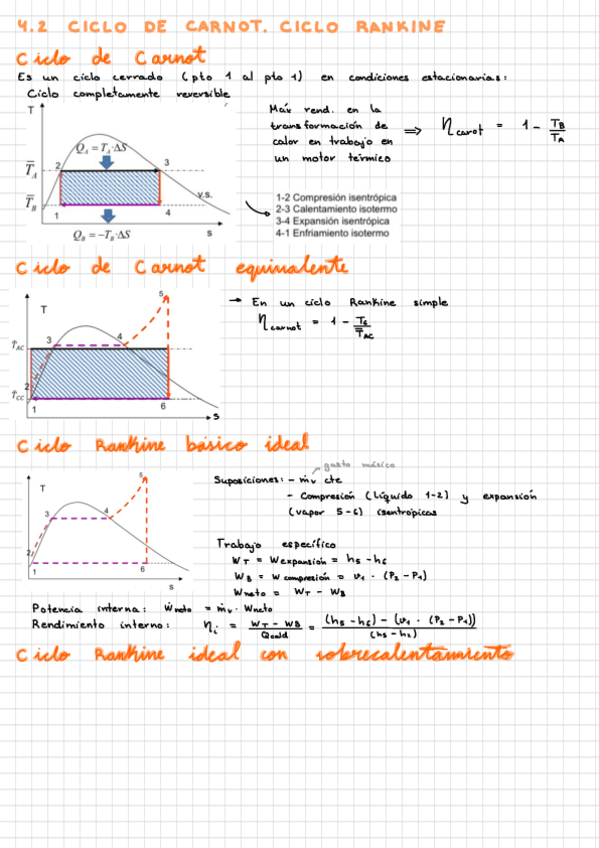 4.2 CICLO DE CARNOT. CICLO RANKINE
Ciclo de Carnot
Es un ciclo cerrado (pto 1 al pto 1) en condiciones estacionarias:
Ciclo completamente reversible
T
Q_A = T_A·ΔS
T̅_A
T̅_B
2
3
1
4
v.s.
s
Q_B = −T_B·ΔS
Máx rend. en la
transformación de
calor en trabajo en
un motor térmico
⇒ η carot = 1 - T_B/T_A
1-2 Compresión isentrópica
2-3 Calentamiento isotermo
3-4 Expansión isentrópica
4-1 Enfriamiento isotermo
Ciclo de Carnot equivalente
T
T̅_AC
T̅_CC
1
2
3
4
5
6
s
→ En un ciclo Rankine simple
η carnot = 1 - T_6/T̅_AC
Ciclo Rankine básico ideal
T
1
2
3
4
5
6
s
gasto másico
Suposiciones: - ṁv cte
- Compresión (líquido 1-2) y expansión
(vapor 5-6) isentrópicas
Trabajo específico
W_T = W expansión = h5 - h6
W_B = W compresión = v1 · (P2 - P1)
Wneto = W_T - W_B
Potencia interna: Ẇneto = ṁv · Wneto
Rendimiento interno: ηi = (W_T - W_B)/Qcald = ((h5 - h6) - (v1 · (P2 - P1)))/(h5 - h2)
Ciclo Rankine ideal con sobrecalentamiento